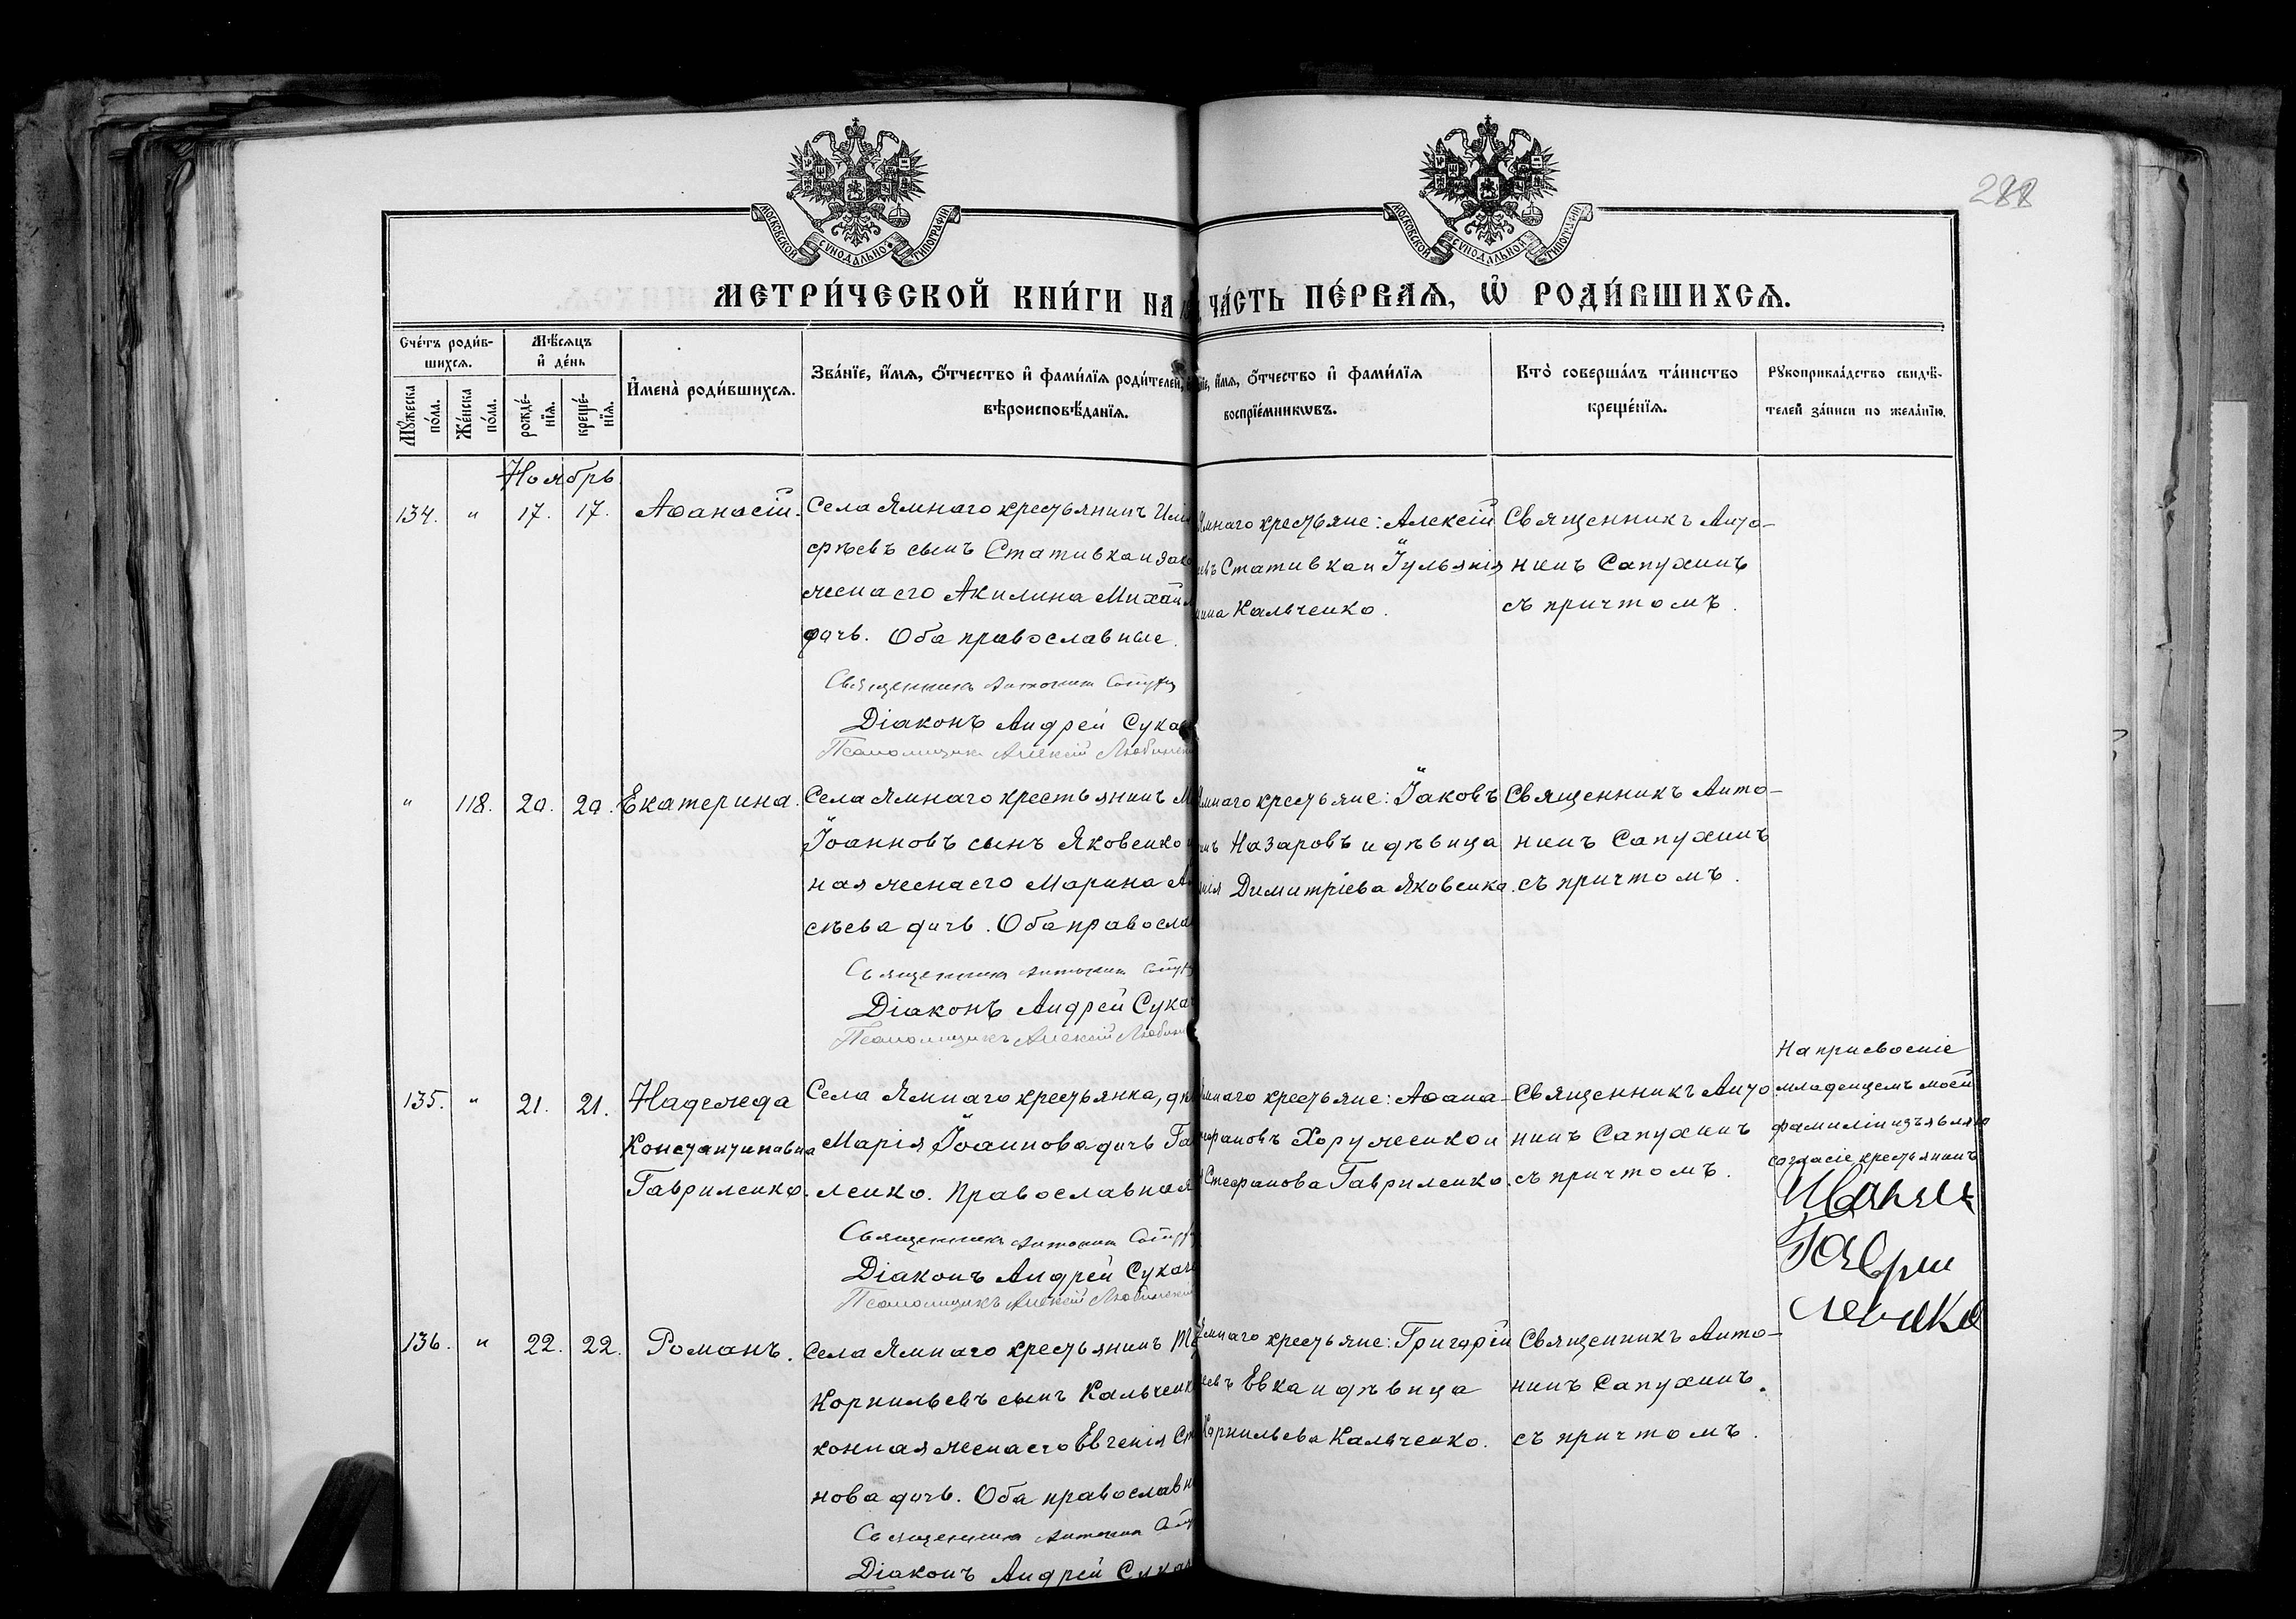 288
МОСКОВСКОЙ СѴНОДАЛЬНОЙ ТИПОГРАФІИ
МОСКОВСКОЙ СѴНОДАЛЬНОЙ ТИПОГРАФІИ
МЕТРИ́ЧЕСКОЙ КНИ́ГИ НА
ЧА́СТЬ ПЕ́РВАѦ, Ѡ҆ РОДИ́ВШИХСѦ.
Сче́тъ роди́в-
шихсѧ.
Мꙋ́жеска по́ла.
Же́нска по́ла.
Мѣ́сѧцъ
и҆ де́нь
рожде́-
нїѧ.
креще́-
нїѧ.
И҆мена̀ роди́вшихсѧ.
Зва́нїе, и҆́мѧ, ѻ҆́тчество и҆ фами́лїѧ роди́телей,
вѣроисповѣ́данїѧ.
и҆́мѧ, ѻ҆́тчество и҆ фами́лїѧ
воспрїе́мникѡвъ.
Кто̀ соверша́лъ та́инство
креще́нїѧ.
Рꙋкоприкла́дство свидѣ́-
телей за́писи по жела́нїю.
Ноябрь
134. " 17. 17. Аѳанасій.
Села Ямнаго крестьянинъ
сынъ Стативка и зако
жена его Акилина Михаи
дочь. Оба православные.
Священникъ Антонинъ
Діаконъ Андрей Сука
Псаломщикъ Алексій
Ямнаго крестьяне: Алексій
Стативка и Іульянія
Кальченко.
Священникъ Анто-
нинъ Сапухинъ
съ причтомъ.
" 118. 20. 20. Екатерина.
Села Ямнаго крестьянинъ
Іоанновъ сынъ Яковенко
ная жена его Марина
сѣева дочь. Оба правосла
Священникъ Антонинъ
Діаконъ Андрей Сука
Псаломщикъ Алексій
Ямнаго крестьяне: Іаковъ
Назаровъ и дѣвица
Димитріева Яковенко.
Священникъ Анто-
нинъ Сапухинъ
съ причтомъ.
135. " 21. 21. Надежда
Константиновна
Гавриленко.
Села Ямнаго крестьянка,
Марія Іоаннова дочь Га
ленко. Православная
Священникъ Антонинъ
Діаконъ Андрей Сукач
Псаломщикъ Алексій
Ямнаго крестьяне: Аѳана-
Хоружженко и
Стефанова Гавриленко.
Священникъ Анто
нинъ Сапухинъ
съ причтомъ.
На присвоеніе
младенцемъ моей
фамиліи изъявляю
согласіе крестьянинъ
Гаври
ленко
136. " 22. 22. Романъ.
Села Ямнаго крестьянинъ
Корнильевъ сынъ Кальченк
конная жена его Евгенія
нова дочь. Оба православн
Священникъ Антонинъ
Діаконъ Андрей Сукач
Ямнаго крестьяне: Григорій
Евка и дѣвица
Корнильева Кальченко.
Священникъ Анто-
нинъ Сапухинъ.
съ причтомъ.